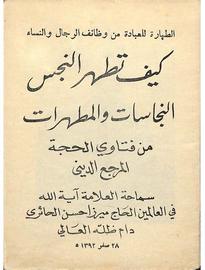 الطهارة للعبادة من وظائف الرجال والنساء
كيف تطهر النجس
النجاسات والمطهرات
من فتاوي الحجة
المرجع الديني
سماحة العلامة آية الله
في العالمين الحاج ميرزا حسن الحائري
دام ظله العالي
٢٨ صفر ١٣٩٢ ه